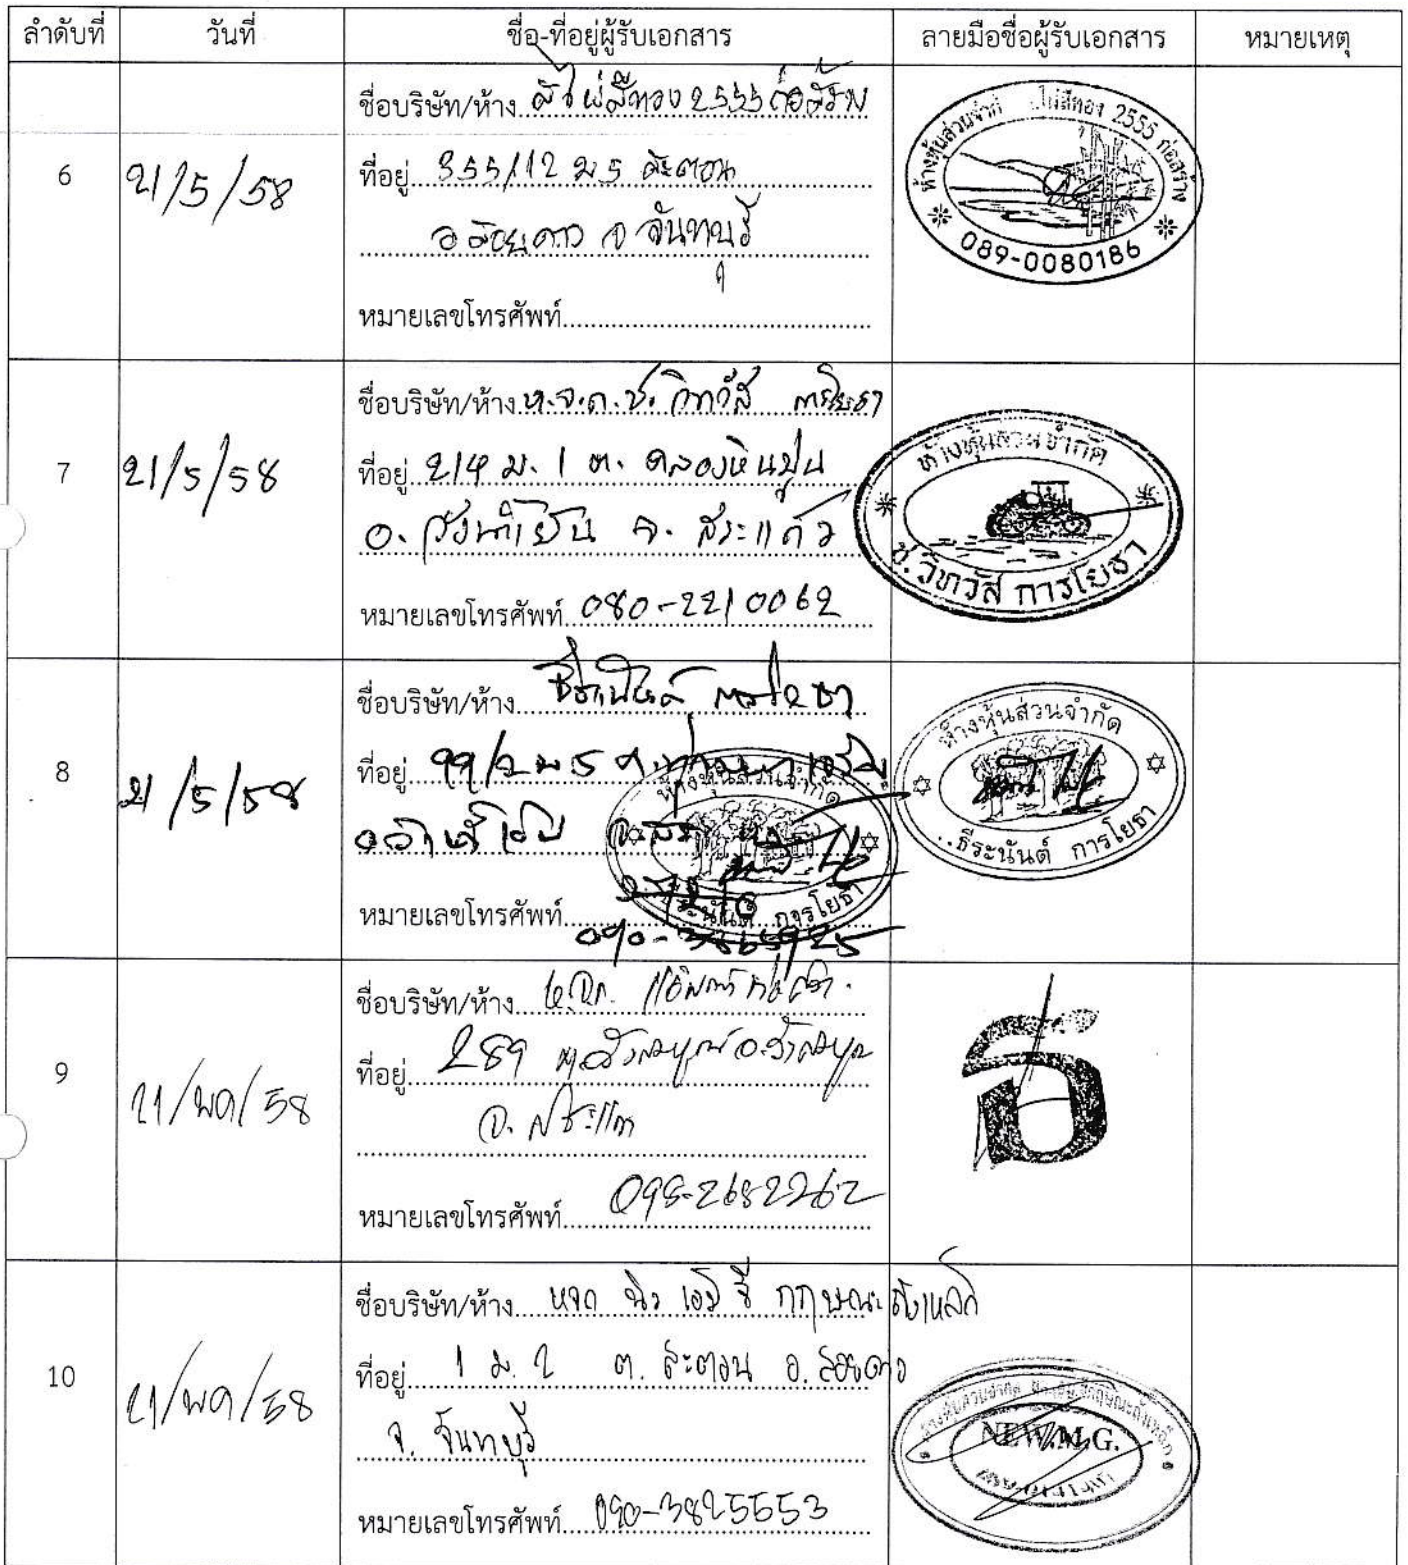 ลำดับที่ วันที่ ชื่อ-ที่อยู่ผู้รับเอกสาร ลายมือชื่อผู้รับเอกสาร หมายเหตุ
6 21/5/58
ชื่อบริษัท/ห้าง ไผ่สีทอง 2555 ก่อสร้าง
ที่อยู่ 355/12 ม 5 สะตอน
อ สอยดาว จ จันทบุรี
หมายเลขโทรศัพท์
ห้างหุ้นส่วนจำกัด ไผ่สีทอง 2555 ก่อสร้าง
089-0080186
7 21/5/58
ชื่อบริษัท/ห้าง ห.จ.ก. ช. วิทวัส การโยธา
ที่อยู่ 214 ม. 1 ต. คลองหินปูน
อ. วังน้ำเย็น จ. สระแก้ว
หมายเลขโทรศัพท์ 080-2210062
ห้างหุ้นส่วนจำกัด
ช.วิทวัส การโยธา
8 21/5/58
ชื่อบริษัท/ห้าง ธีระนันต์ การโยธา
ที่อยู่ 99/2 ม 5
หมายเลขโทรศัพท์
ห้างหุ้นส่วนจำกัด
ธีระนันต์ การโยธา
ห้างหุ้นส่วนจำกัด
ธีระนันต์ การโยธา
9 21/พค/58
ชื่อบริษัท/ห้าง ห.จ.ก.
ที่อยู่ 289 ต.วังสมบูรณ์ อ.วังสมบูรณ์
จ. สระแก้ว
หมายเลขโทรศัพท์ 098-2682262
10 21/พค/58
ชื่อบริษัท/ห้าง หจก นิว เอ็ม จี กฤษณะถังเหล็ก
ที่อยู่ 1 ม. 2 ต. สะตอน อ. สอยดาว
จ. จันทบุรี
หมายเลขโทรศัพท์ 090-3825553
NEW.M.G.